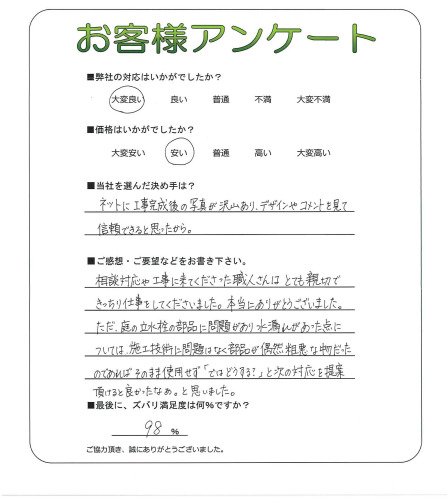 お客様アンケート
■弊社の対応はいかがでしたか？
大変良い 良い 普通 不満 大変不満
■価格はいかがでしたか？
大変安い 安い 普通 高い 大変高い
■当社を選んだ決め手は？
ネットに工事完成後の写真が沢山あり、デザインやコメントを見て
信頼できると思ったから。
■ご感想・ご要望などをお書き下さい。
相談対応や工事に来てくださった職人さんはとても親切で
きっちり仕事をしてくださいました。本当にありがとうございました。
ただ、庭の立水栓の部品に問題があり水漏れがあった点に
ついては、施工技術に問題はなく部品が偶然粗悪な物だった
のであればそのまま使用せず「ではどうする？」と次の対応を提案
頂けると良かったなぁ。と思いました。
■最後に、ズバリ満足度は何％ですか？
98 ％
ご協力頂き、誠にありがとうございました。